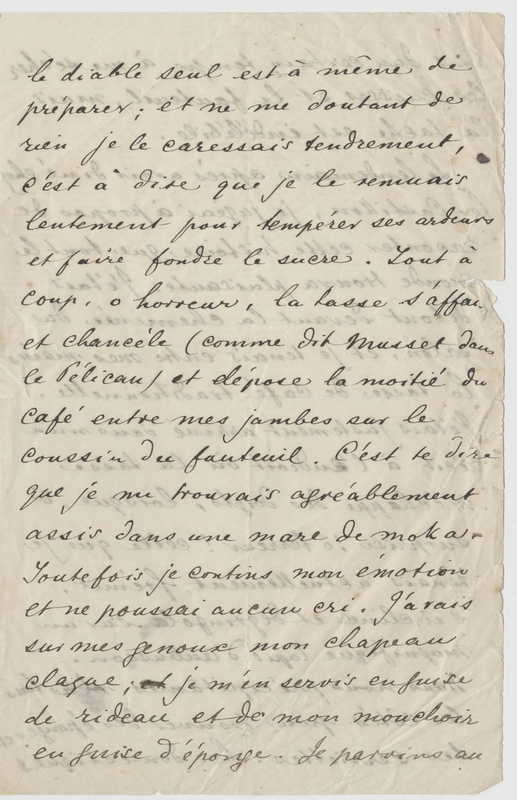 le diable seul est à même de
préparer; et ne me doutant de
rien je le caressais tendrement,
c'est à dire que je le remuais
lentement pour tempérer ses ardeurs
et faire fondre le sucre. Tout à
coup, o horreur, la tasse s'affai
et chancèle (comme dit Musset dans
le Pélican) et dépose la moitié du
café entre mes jambes sur le
coussin du fauteuil. C'est te dire
que je me trouvais agréablement
assis dans une mare de moka.
Toutefois je contins mon émotion
et ne poussai aucun cri. J'avais
sur mes genoux mon chapeau
claque; et je m'en servis en guise
de rideau et de mon mouchoir
en guise d'éponge. Je parvins au